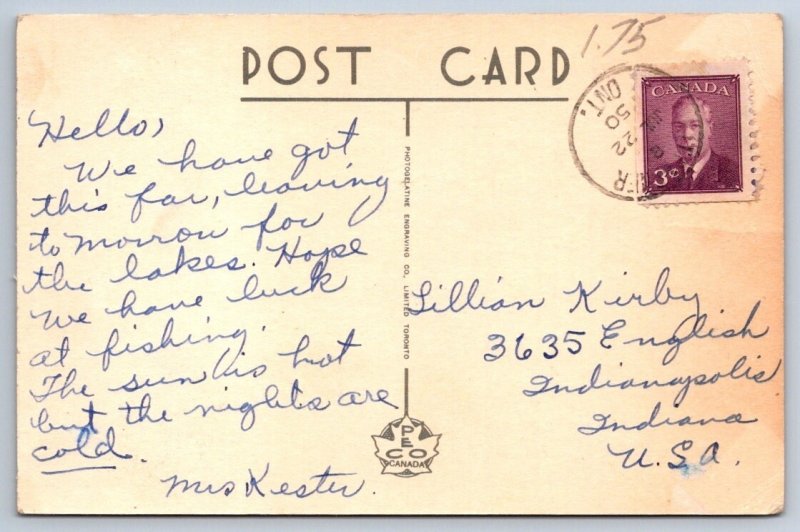 POST CARD
1.75
CANADA
3¢
ONT.
50
22
Hello,
We have got
this far, leaving
to morrow for
the lakes. Hope
We have luck
at fishing.
The sun is hot
but the nights are
cold.
Mrs Kester.
PHOTOGELATINE ENGRAVING CO. LIMITED TORONTO
PECO
CANADA
Lillian Kirby
3635 English
Indianapolis
Indiana
U.S.A.